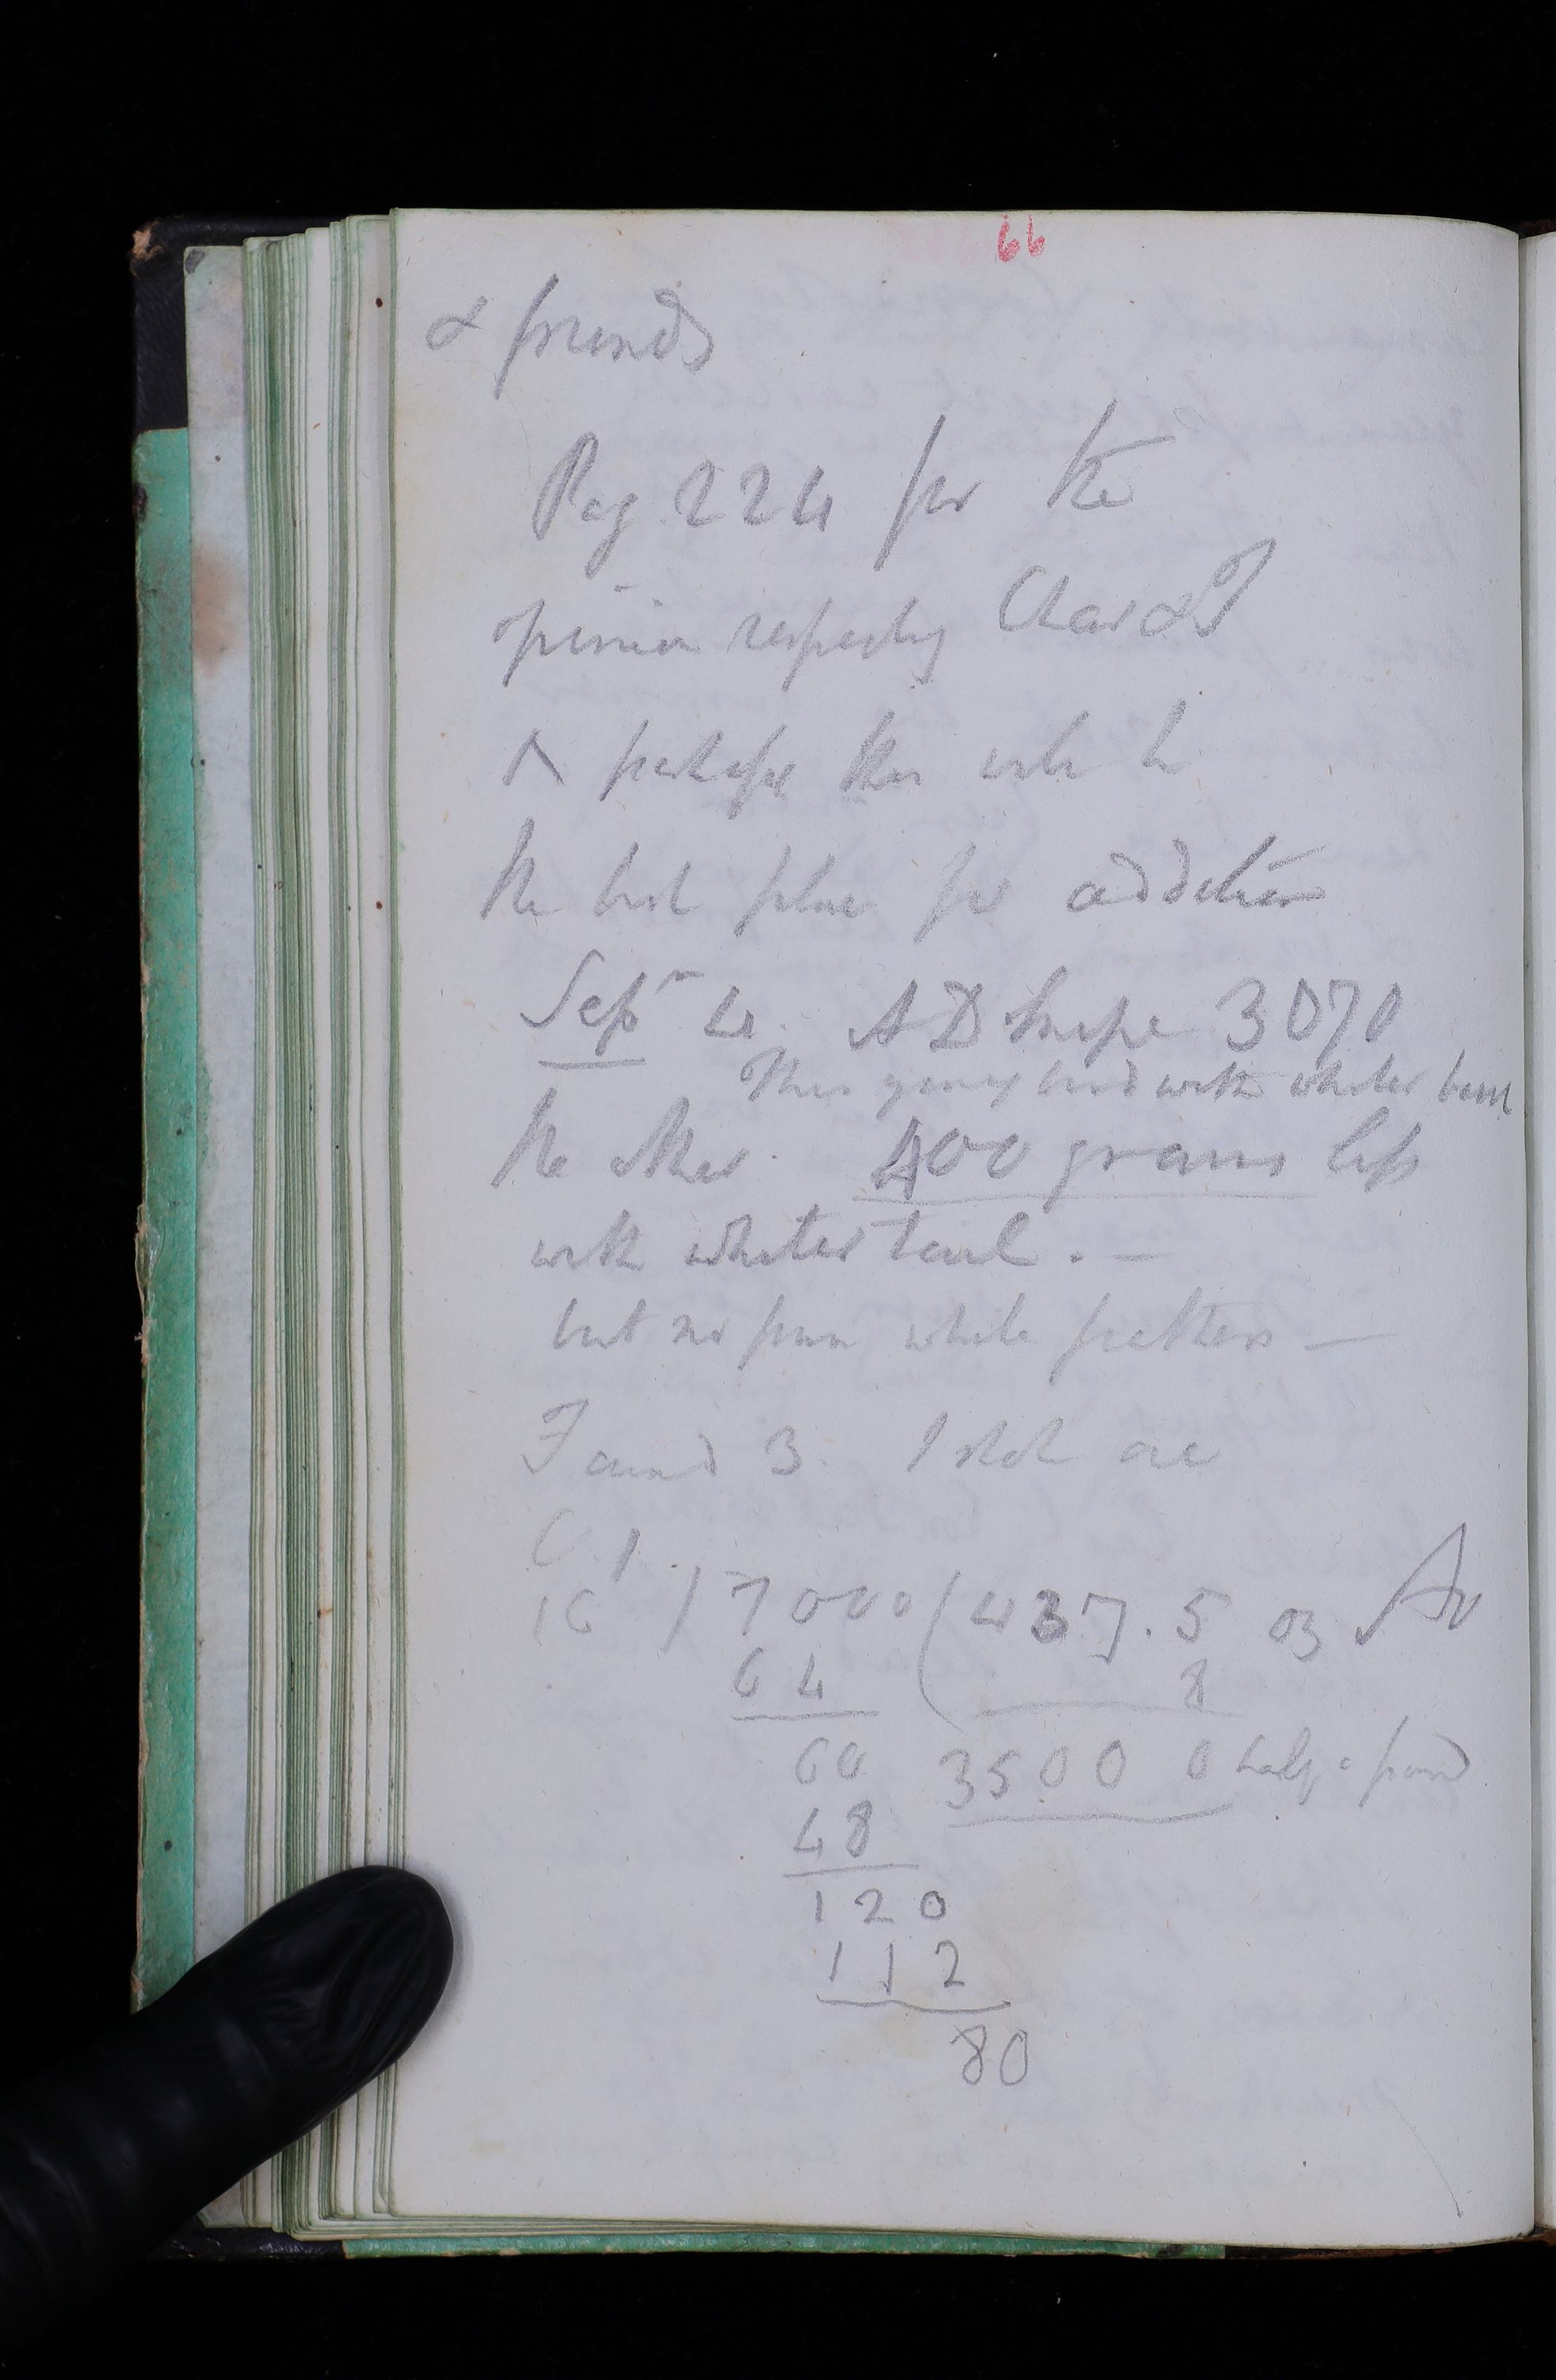 66
& friends
Pag. 224 for the
opinion respecting Char
& perhaps this will be
the best place for addition
Sepr 4. A D Snipe 3070
This young bird with whiter
the other 400 grains less
with whiter tail. —
but no pure white feathers —
Found 3. I shot one
16 ) 7000 ( 437.5 oz Av
64 8
60 3500 0 half a pound
48
120
112
80